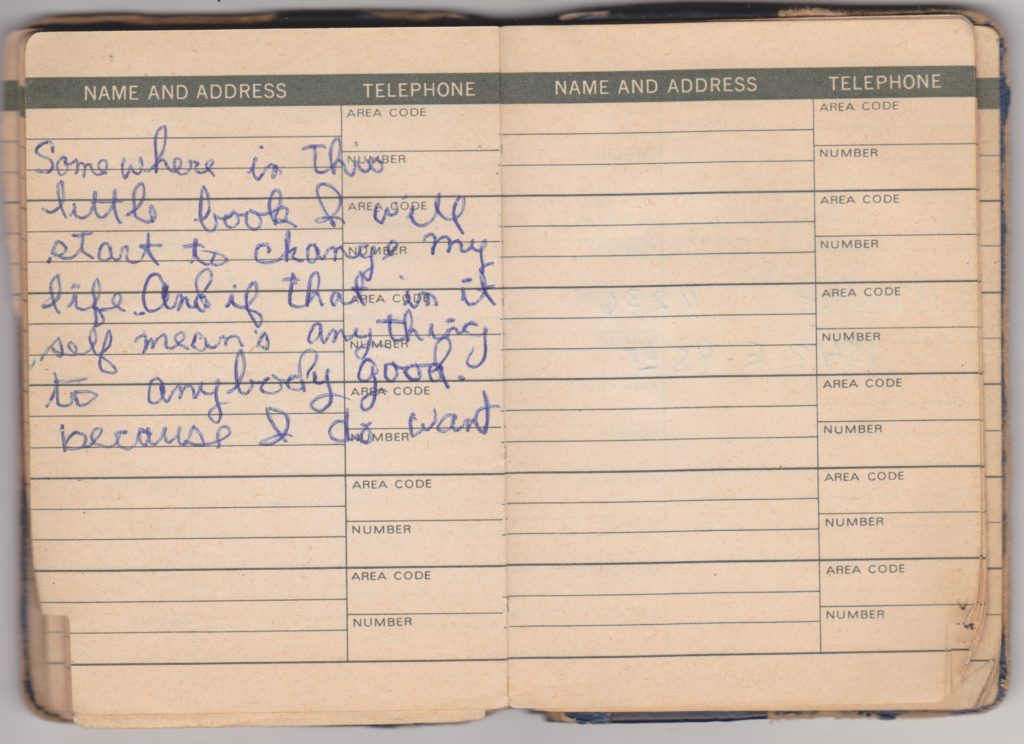 NAME AND ADDRESS TELEPHONE
AREA CODE
Somewhere in this
NUMBER
little book I will
AREA CODE
start to change my
NUMBER
life. And if that in it
AREA CODE
self mean's anything
NUMBER
to anybody good.
AREA CODE
because I do want
NUMBER
AREA CODE
NUMBER
AREA CODE
NUMBER
NAME AND ADDRESS TELEPHONE
AREA CODE
NUMBER
AREA CODE
NUMBER
AREA CODE
NUMBER
AREA CODE
NUMBER
AREA CODE
NUMBER
AREA CODE
NUMBER